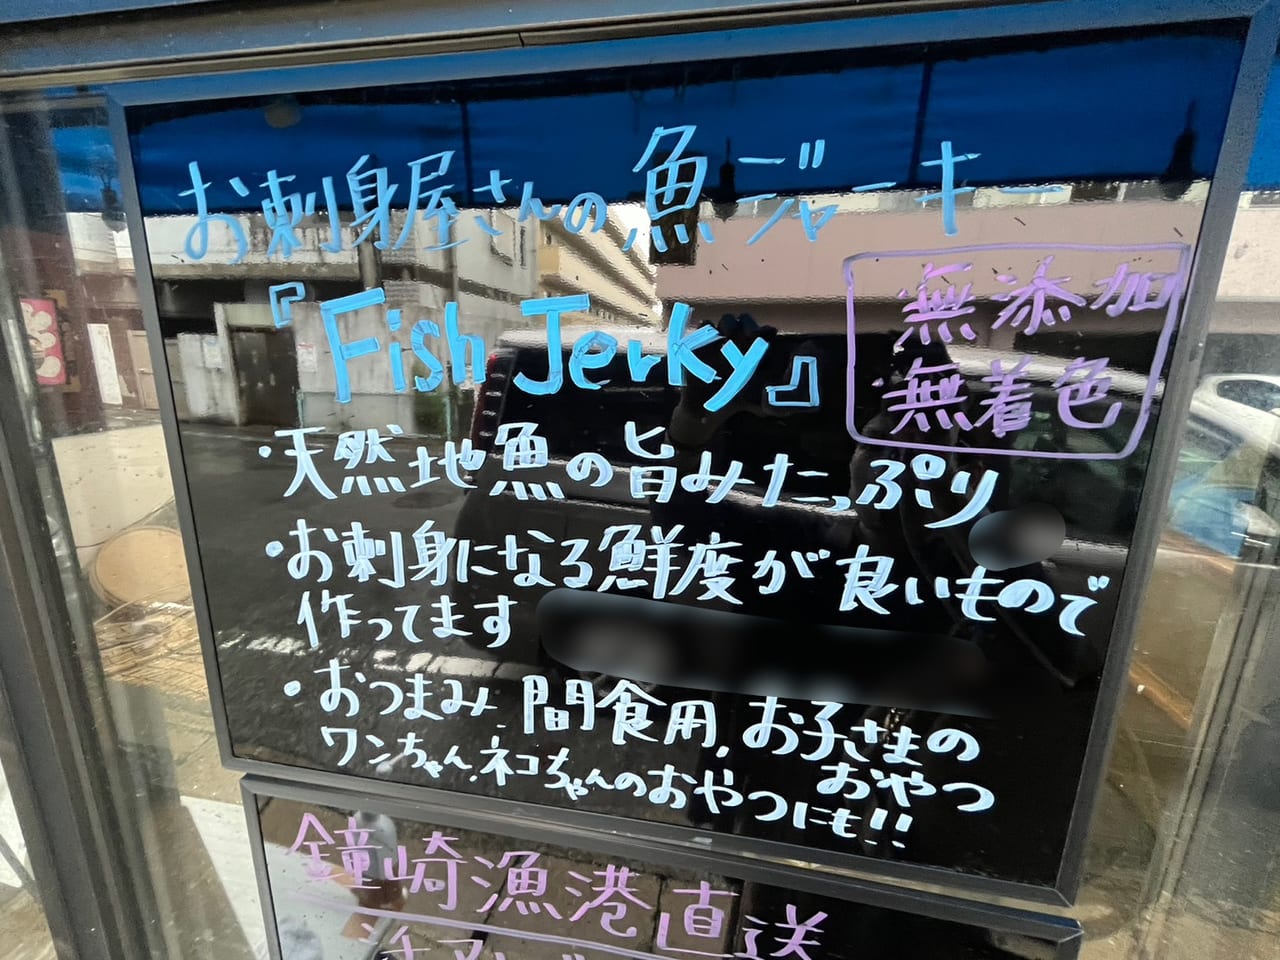 お刺身屋さんの魚ジャーキー
『Fish Jerky』
無添加
無着色
・天然地魚の旨みたっぷり
・お刺身になる鮮度が良いもので
作ってます
・おつまみ、間食用、お子さまの
おやつ
ワンちゃん、ネコちゃんのおやつにも!!
鐘崎漁港直送